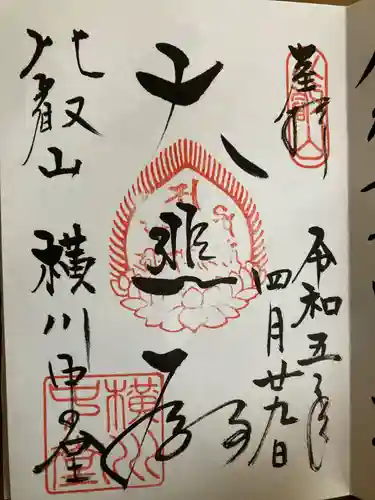 令和五年
四月廿九日
大悲殿
比叡山 横川中堂
横川
中堂